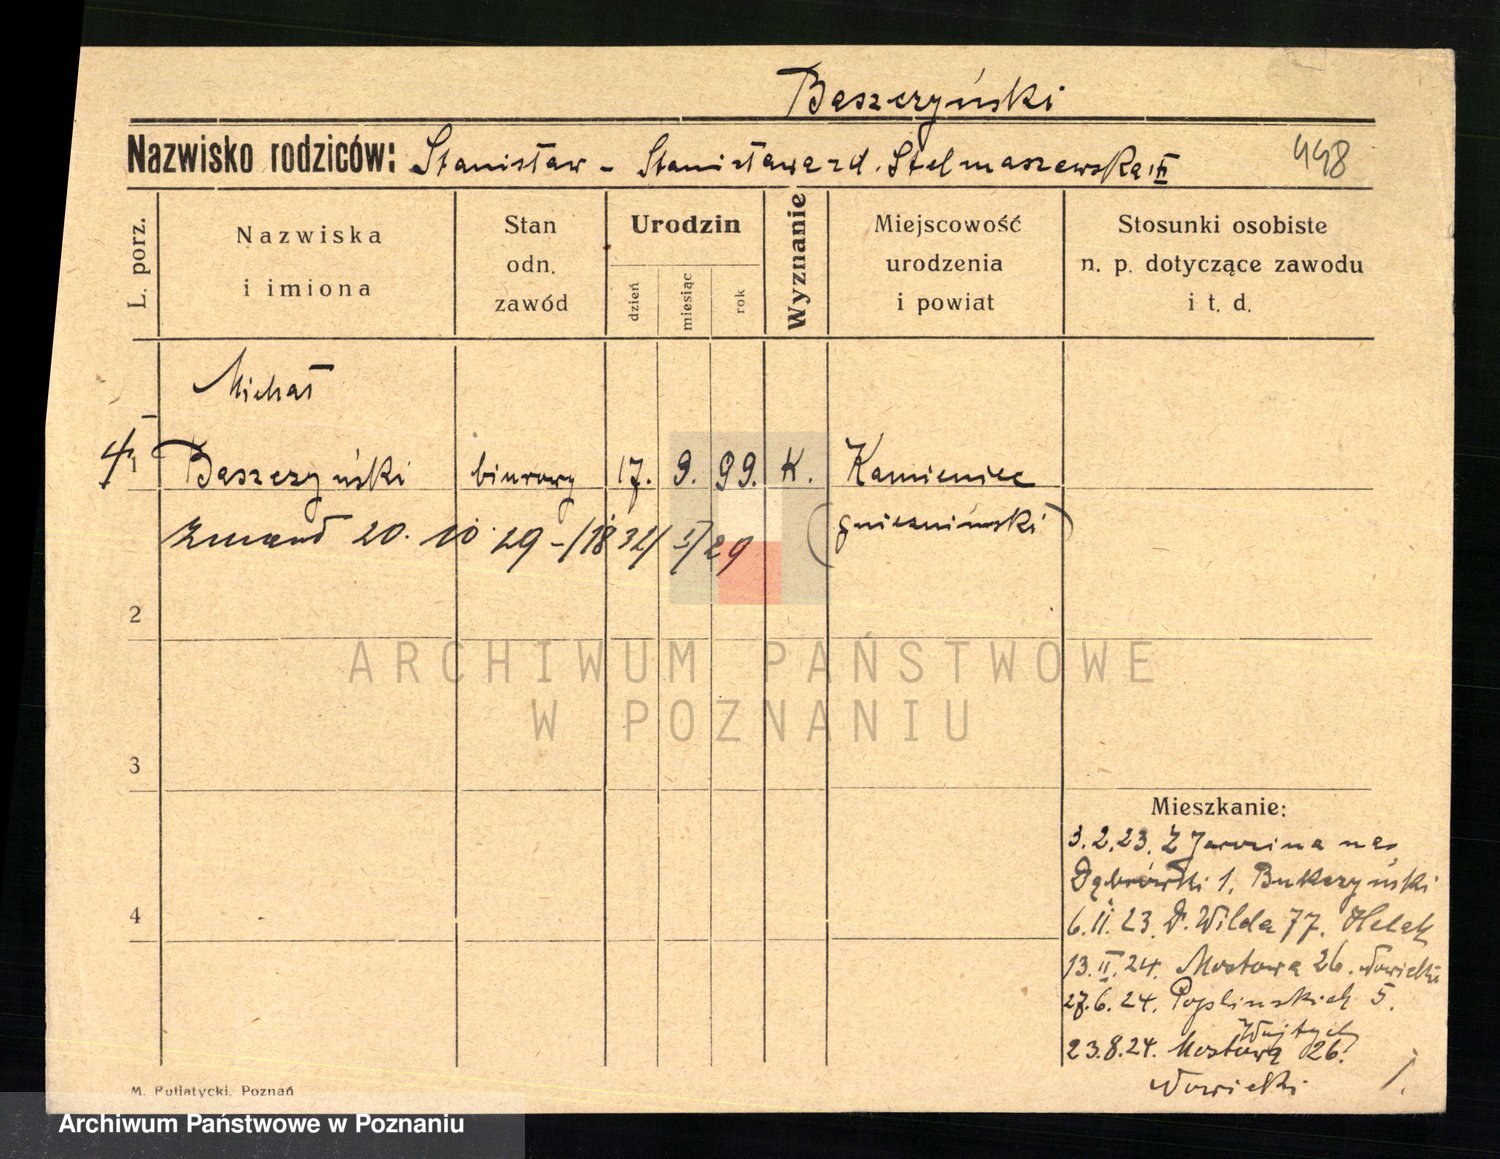 Bąszczyński
Nazwisko rodziców: Stanisław - Stanisława zd. Stelmaszewska
448
L. porz.
Nazwiska
i imiona
Stan
odn.
zawód
Urodzin
dzień
miesiąc
rok
Wyznanie
Miejscowość
urodzenia
i powiat
Stosunki osobiste
n. p. dotyczące zawodu
i t. d.
Michał
1 Bąszczyński biurowy 17. 9. 99. K. Kamieniec
(gnieźnieński)
20. 10 29
2
3
4
ARCHIWUM PAŃSTWOWE
W POZNANIU
Mieszkanie:
3.2.23. Z Jarocina na
Dąbrówki 1. Bukczyński
6.II.23. D. Wilda 77.
13.II.24. Mostowa 26. Nowicki
27.6.24. Poplinskich 5.
Wojtych
23.8.24. Mostowa 26.
Nowicki
M. Putiatycki, Poznań
Archiwum Państwowe w Poznaniu